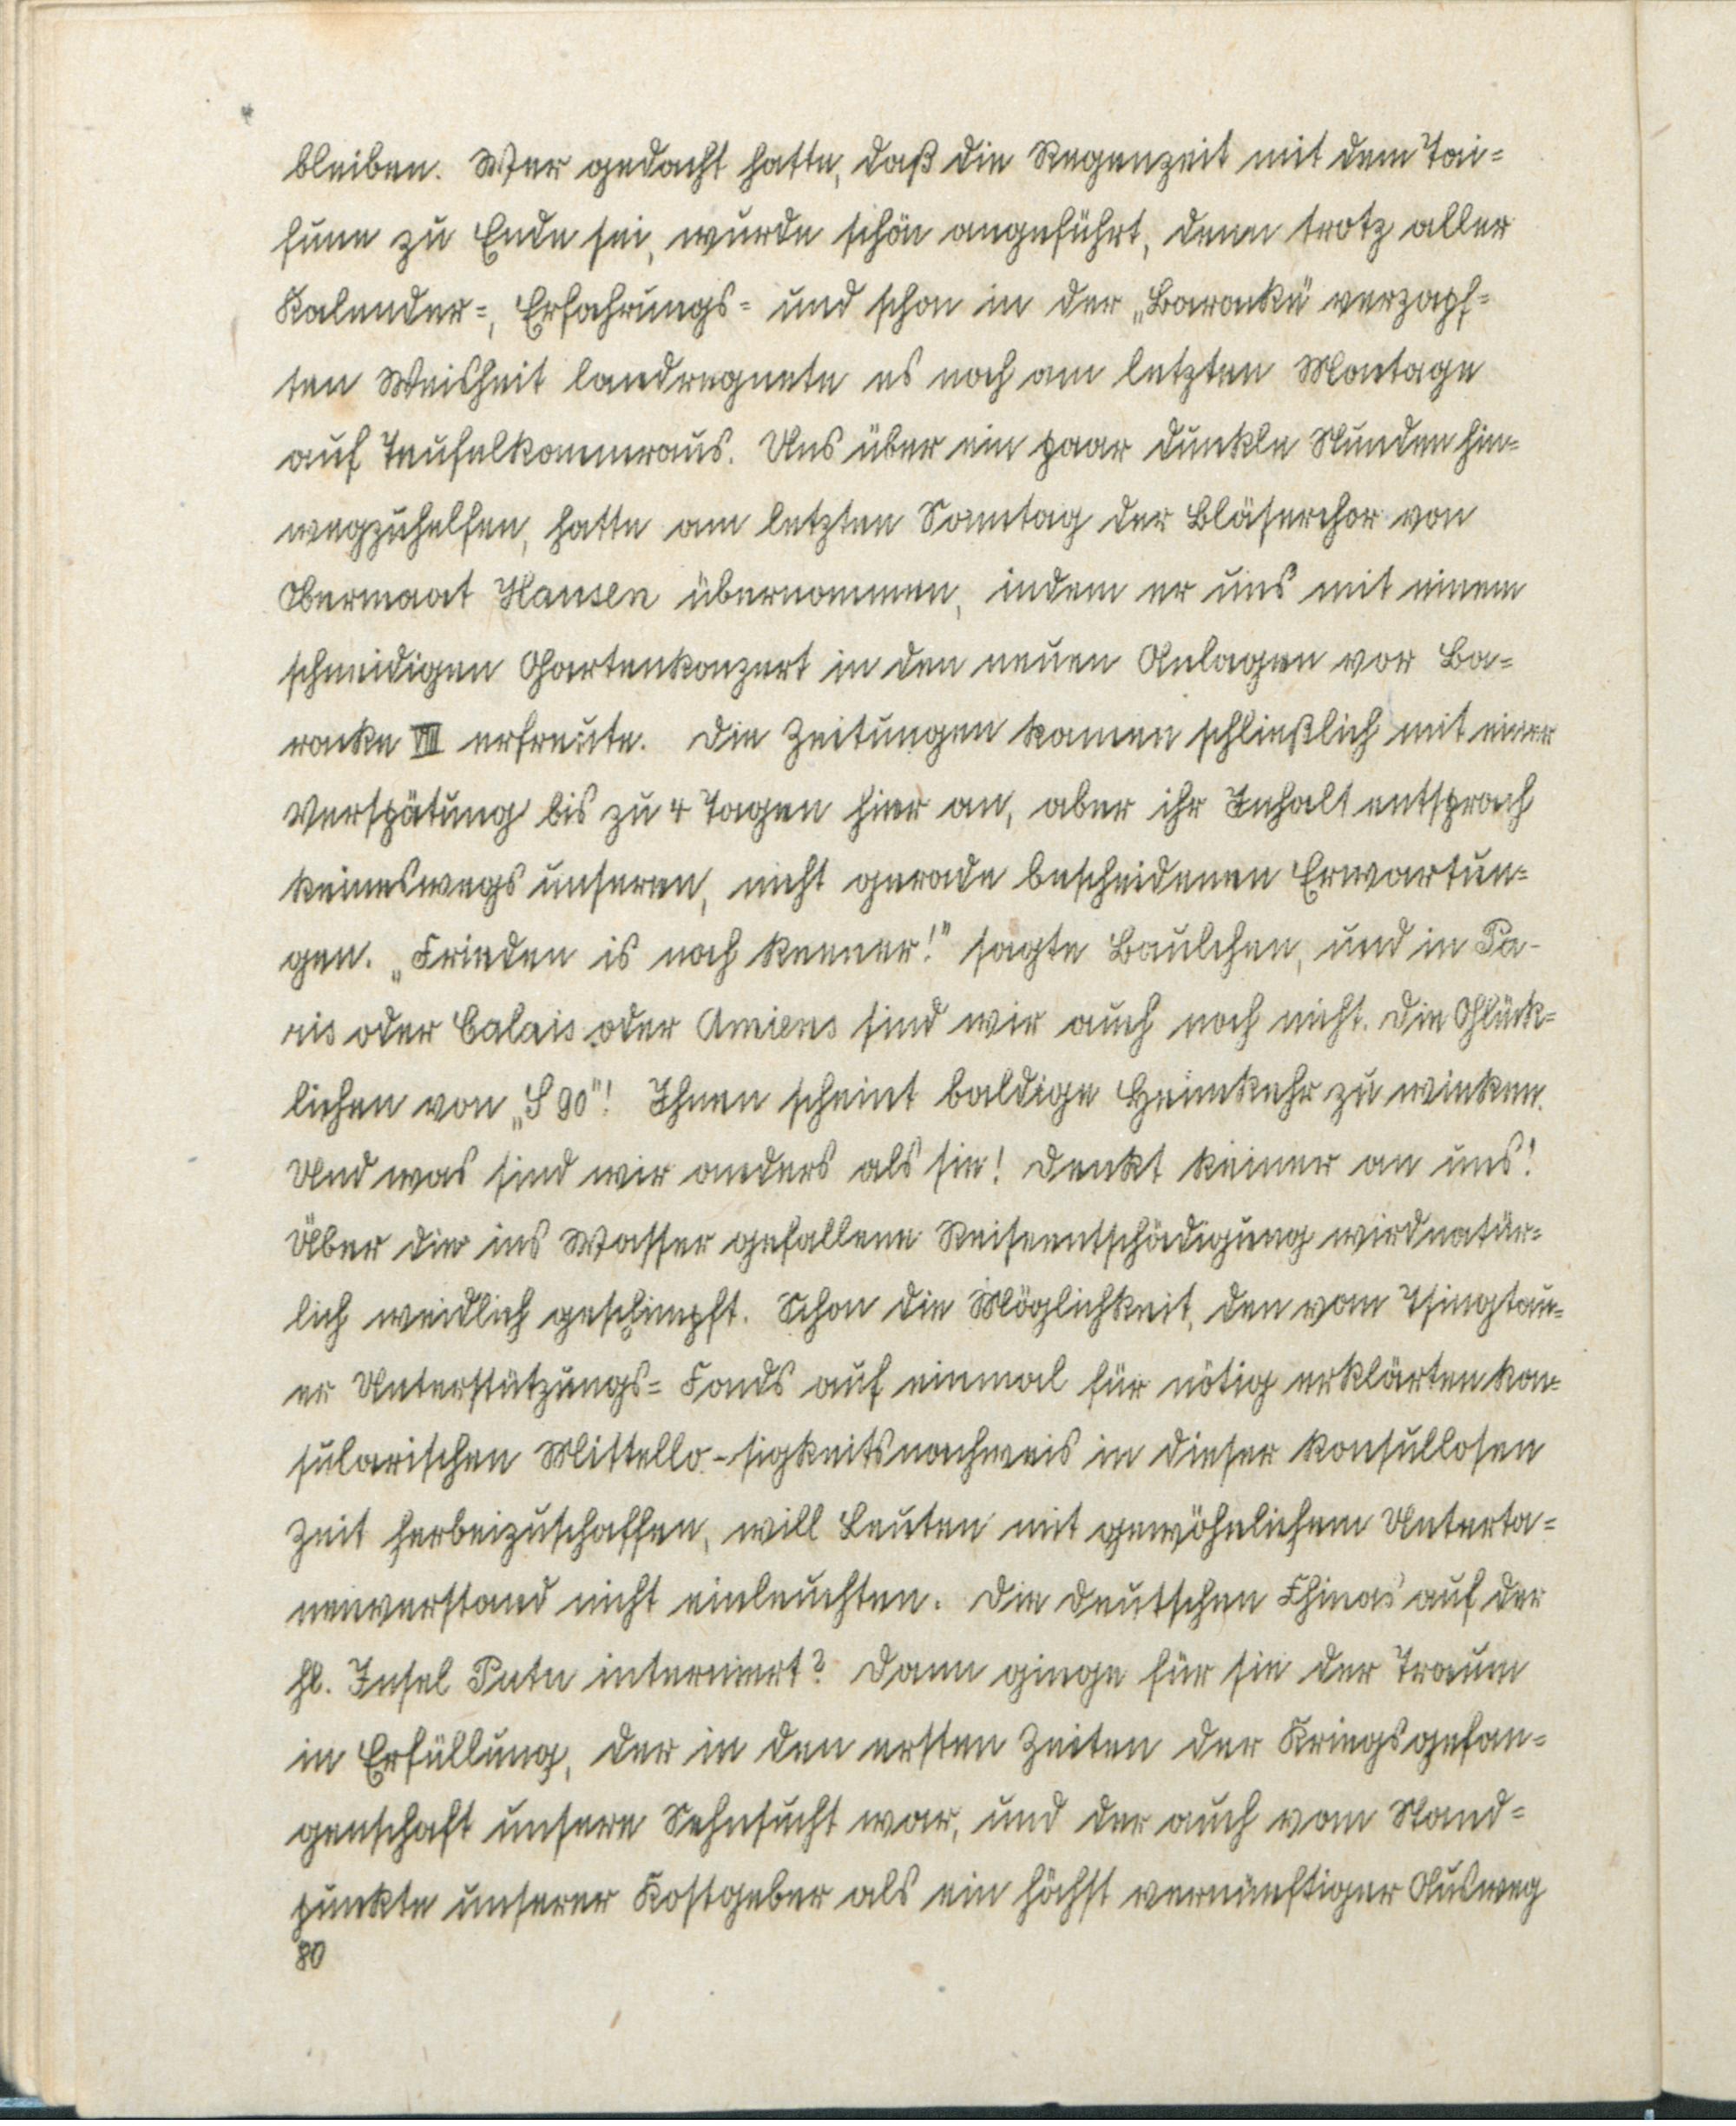 bleiben. Wer gedacht hatte, daß die Regenzeit mit dem Tai=
fune zu Ende sei, wurde schön angeführt, denn trotz aller
Kalender=, Erfahrungs= und schon in der „Baracke" verzapf=
ten Weisheit landregnete es noch am letzten Montage
auf Teufelkommraus. Uns über ein paar dunkle Stunden hin=
wegzuhelfen, hatte am letzten Sonntag der Bläserchor von
Obermaat Hansen übernommen, indem er uns mit einem
schneidigen Gartenkonzert in den neuen Anlagen vor Ba=
racke VIII erfreute. Die Zeitungen kamen schließlich mit einer
Verspätung bis zu 4 Tagen hier an, aber ihr Inhalt entsprach
keineswegs unseren, nicht gerade bescheidenen Erwartun=
gen. „Frieden is noch keener!" sagte Baulchen, und in Pa-
ris oder Calais oder Amiens sind wir auch noch nicht. Die Glück=
lichen von „S 90"! Ihnen scheint baldige Heimkehr zu winken.
Und was sind wir anders als sie! Denkt keiner an uns!
Über die ins Wasser gefallene Reiseentschädigung wird natür=
lich weidlich geschimpft. Schon die Möglichkeit, den vom Tsingtau=
er Unterstützungs= Fonds auf einmal für nötig erklärten kon=
sularischen Mittello-sigkeitsnachweis in dieser konsullosen
Zeit herbeizuschaffen, will Leuten mit gewöhnlichem Unterta=
nenverstand nicht einleuchten. Die Deutschen Chinas auf der
hl. Insel Putu interniert? Dann ginge für sie der Traum
in Erfüllung, der in den ersten Zeiten der Kriegsgefan=
genschaft unsere Sehnsucht war, und der auch vom Stand=
punkte unserer Kostgeber als ein höchst vernünftiger Ausweg
80